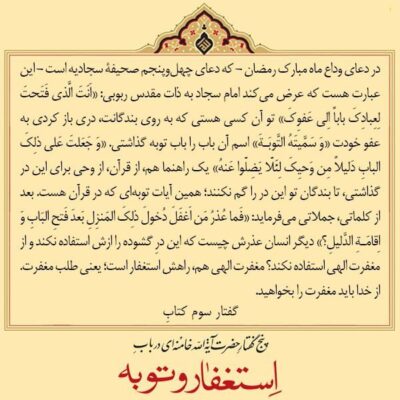 در دعای وداع ماه مبارک رمضان – که دعای چهل‌وپنجم صحیفهٔ سجادیه است – این
عبارت هست که عرض می‌کند امام سجاد به ذات مقدس ربوبی: «أَنتَ الَّذی فَتَحتَ
لِعِبادِکَ باباً اِلی عَفوِکَ» تو آن کسی هستی که به روی بندگانت، دری باز کردی به
عفو خودت «وَ سَمَّیتَهُ التَّوبَـةَ» اسم آن باب را باب توبه گذاشتی. «وَ جَعَلتَ عَلی ذلِکَ
البابِ دَلیلاً مِن وَحیِکَ لِئَلّا یَضلّوا عَنهُ» یک راهنما هم، از قرآن، از وحی برای این در
گذاشتی، تا بندگان تو این در را گم نکنند؛ همین آیات توبه‌ای که در قرآن هست. بعد
از کلماتی، جملاتی می‌فرماید: «فَما عُذرُ مَن اَغفَلَ دُخولَ ذلِکَ المَنزِلِ بَعدَ فَتحِ البابِ وَ
اِقامَـةِ الدَّلیلِ؟» دیگر انسان عذرش چیست که این در گشوده را ازش استفاده نکند و از
مغفرت الهی استفاده نکند؟ مغفرت الهی هم، راهش استغفار است؛ یعنی طلب مغفرت.
از خدا باید مغفرت را بخواهید.
گفتار سوم کتابِ
پنج گفتار حضرت آیة الله خامنه‌ای در بابِ
اِستغفار و توبه